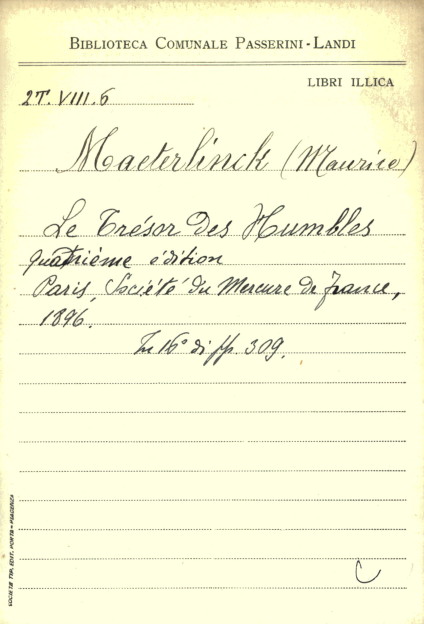 BIBLIOTECA COMUNALE PASSERINI-LANDI
LIBRI ILLICA
2T.VIII.6
Maeterlinck (Maurice)
Le Trésor des Humbles
quatrième édition
Paris, Société du Mercure de France,
1896.
In 16° di pp. 309.
C
SOCIETÀ TIP. EDIT. PORTA - PIACENZA